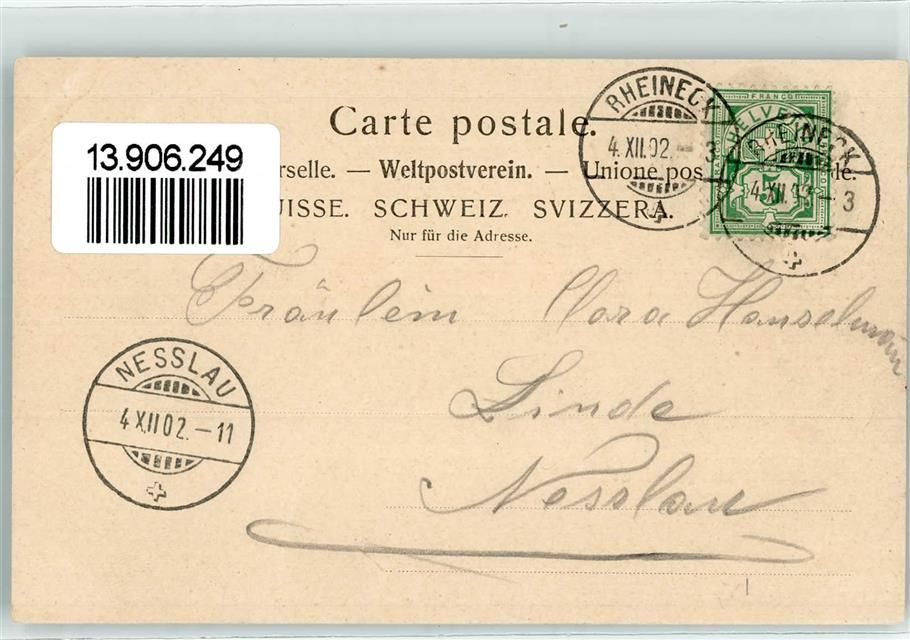 Carte postale.
13.906.249
rselle. — Weltpostverein. — Unione pos le.
UISSE. SCHWEIZ. SVIZZERA.
Nur für die Adresse.
RHEINECK
4.XII.02.-3
FRANCO
HELVETIA
5
RHEINECK
4.XII.02.-3
Fräulein Clara Hanselmann
Linde
Nesslau
NESSLAU
4.XII.02.-11